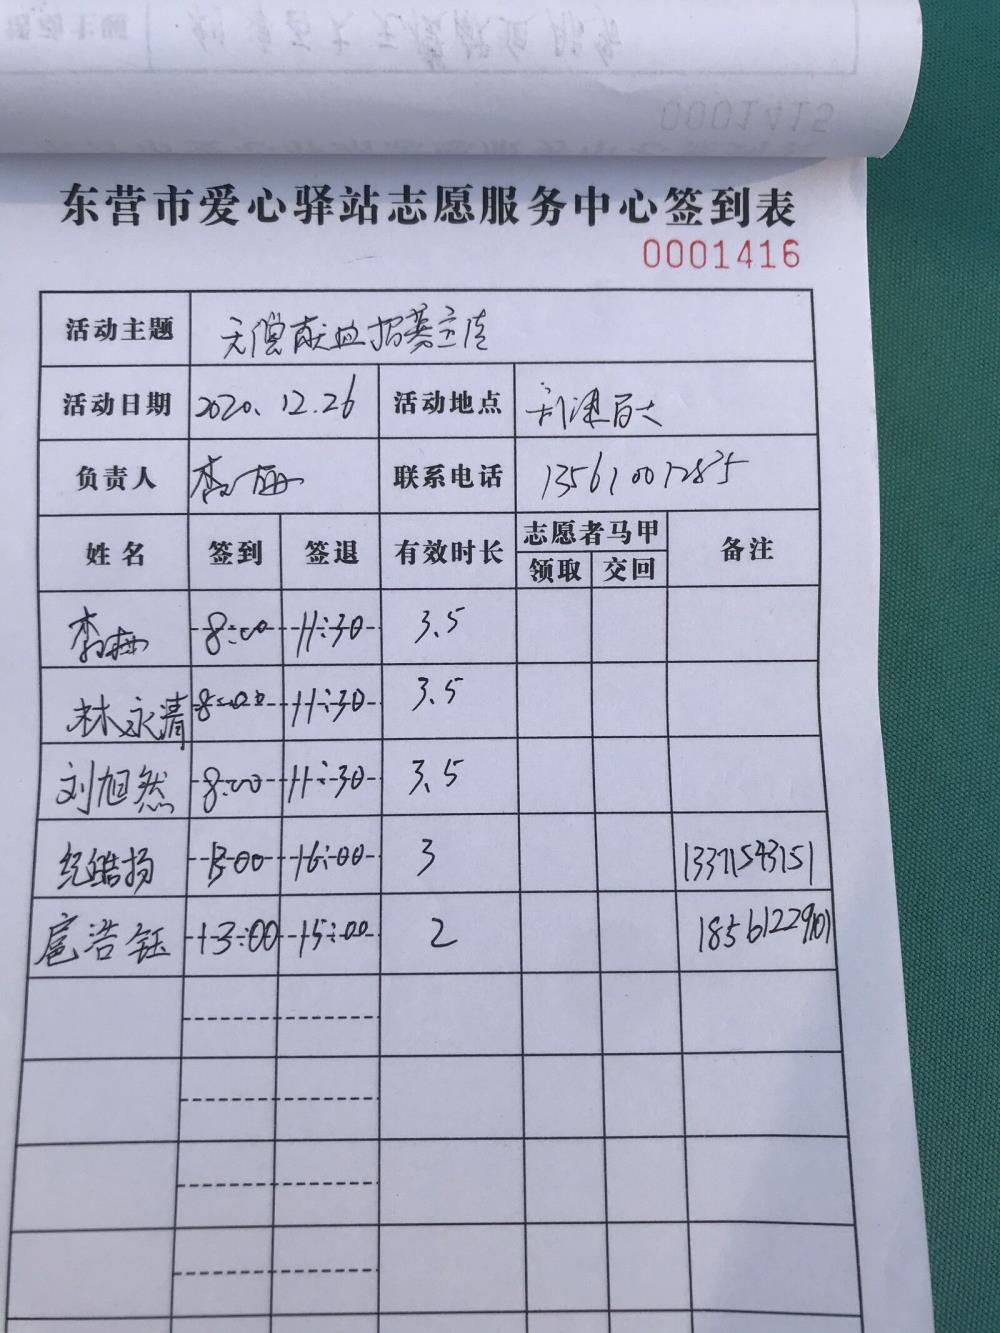 东营市爱心驿站志愿服务中心签到表
0001416
活动主题 无偿献血招募宣传
活动日期 2020.12.26 活动地点 利津百大
负责人 李梅 联系电话 13561001285
姓名 签到 签退 有效时长 志愿者马甲 领取 交回 备注
李梅 8:00 11:30 3.5
林永清 8:00 11:30 3.5
刘旭然 8:00 11:30 3.5
纪皓扬 13:00 16:00 3 13371543151
扈浩钰 13:00 15:00 2 18561229101